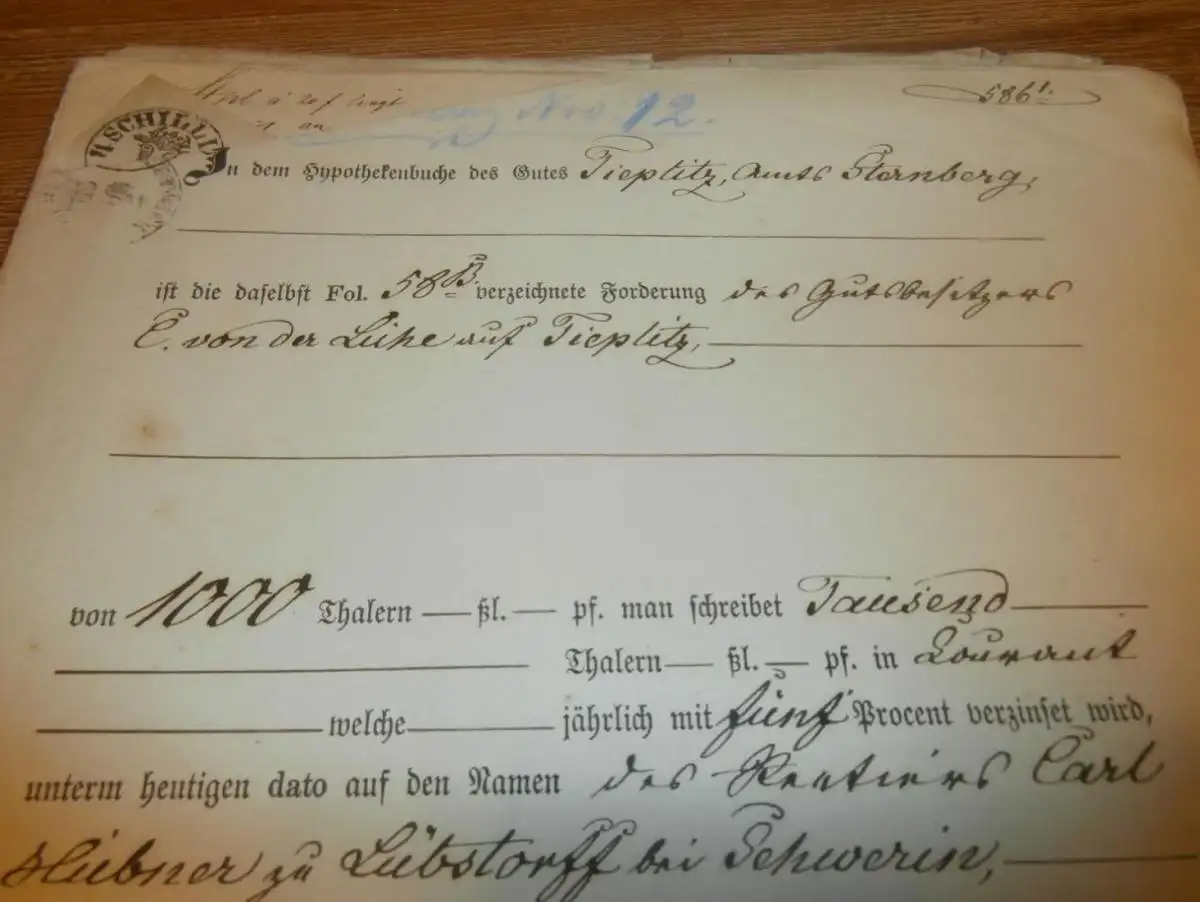 586 1.
No. 12.
SCHILLI
In dem Hypothekenbuche des Gutes Tieplitz, Amts Sternberg,
ist die daselbst Fol. 58 B verzeichnete Forderung des Gutsbesitzers
C. von der Lühe auf Tieplitz,
von 1000 Thalern — ßl. — pf. man schreibet Tausend
Thalern — ßl. — pf. in Courant
welche jährlich mit fünf Procent verzinset wird,
unterm heutigen dato auf den Namen des Rentiers Carl
Hübner zu Lübstorff bei Schwerin,